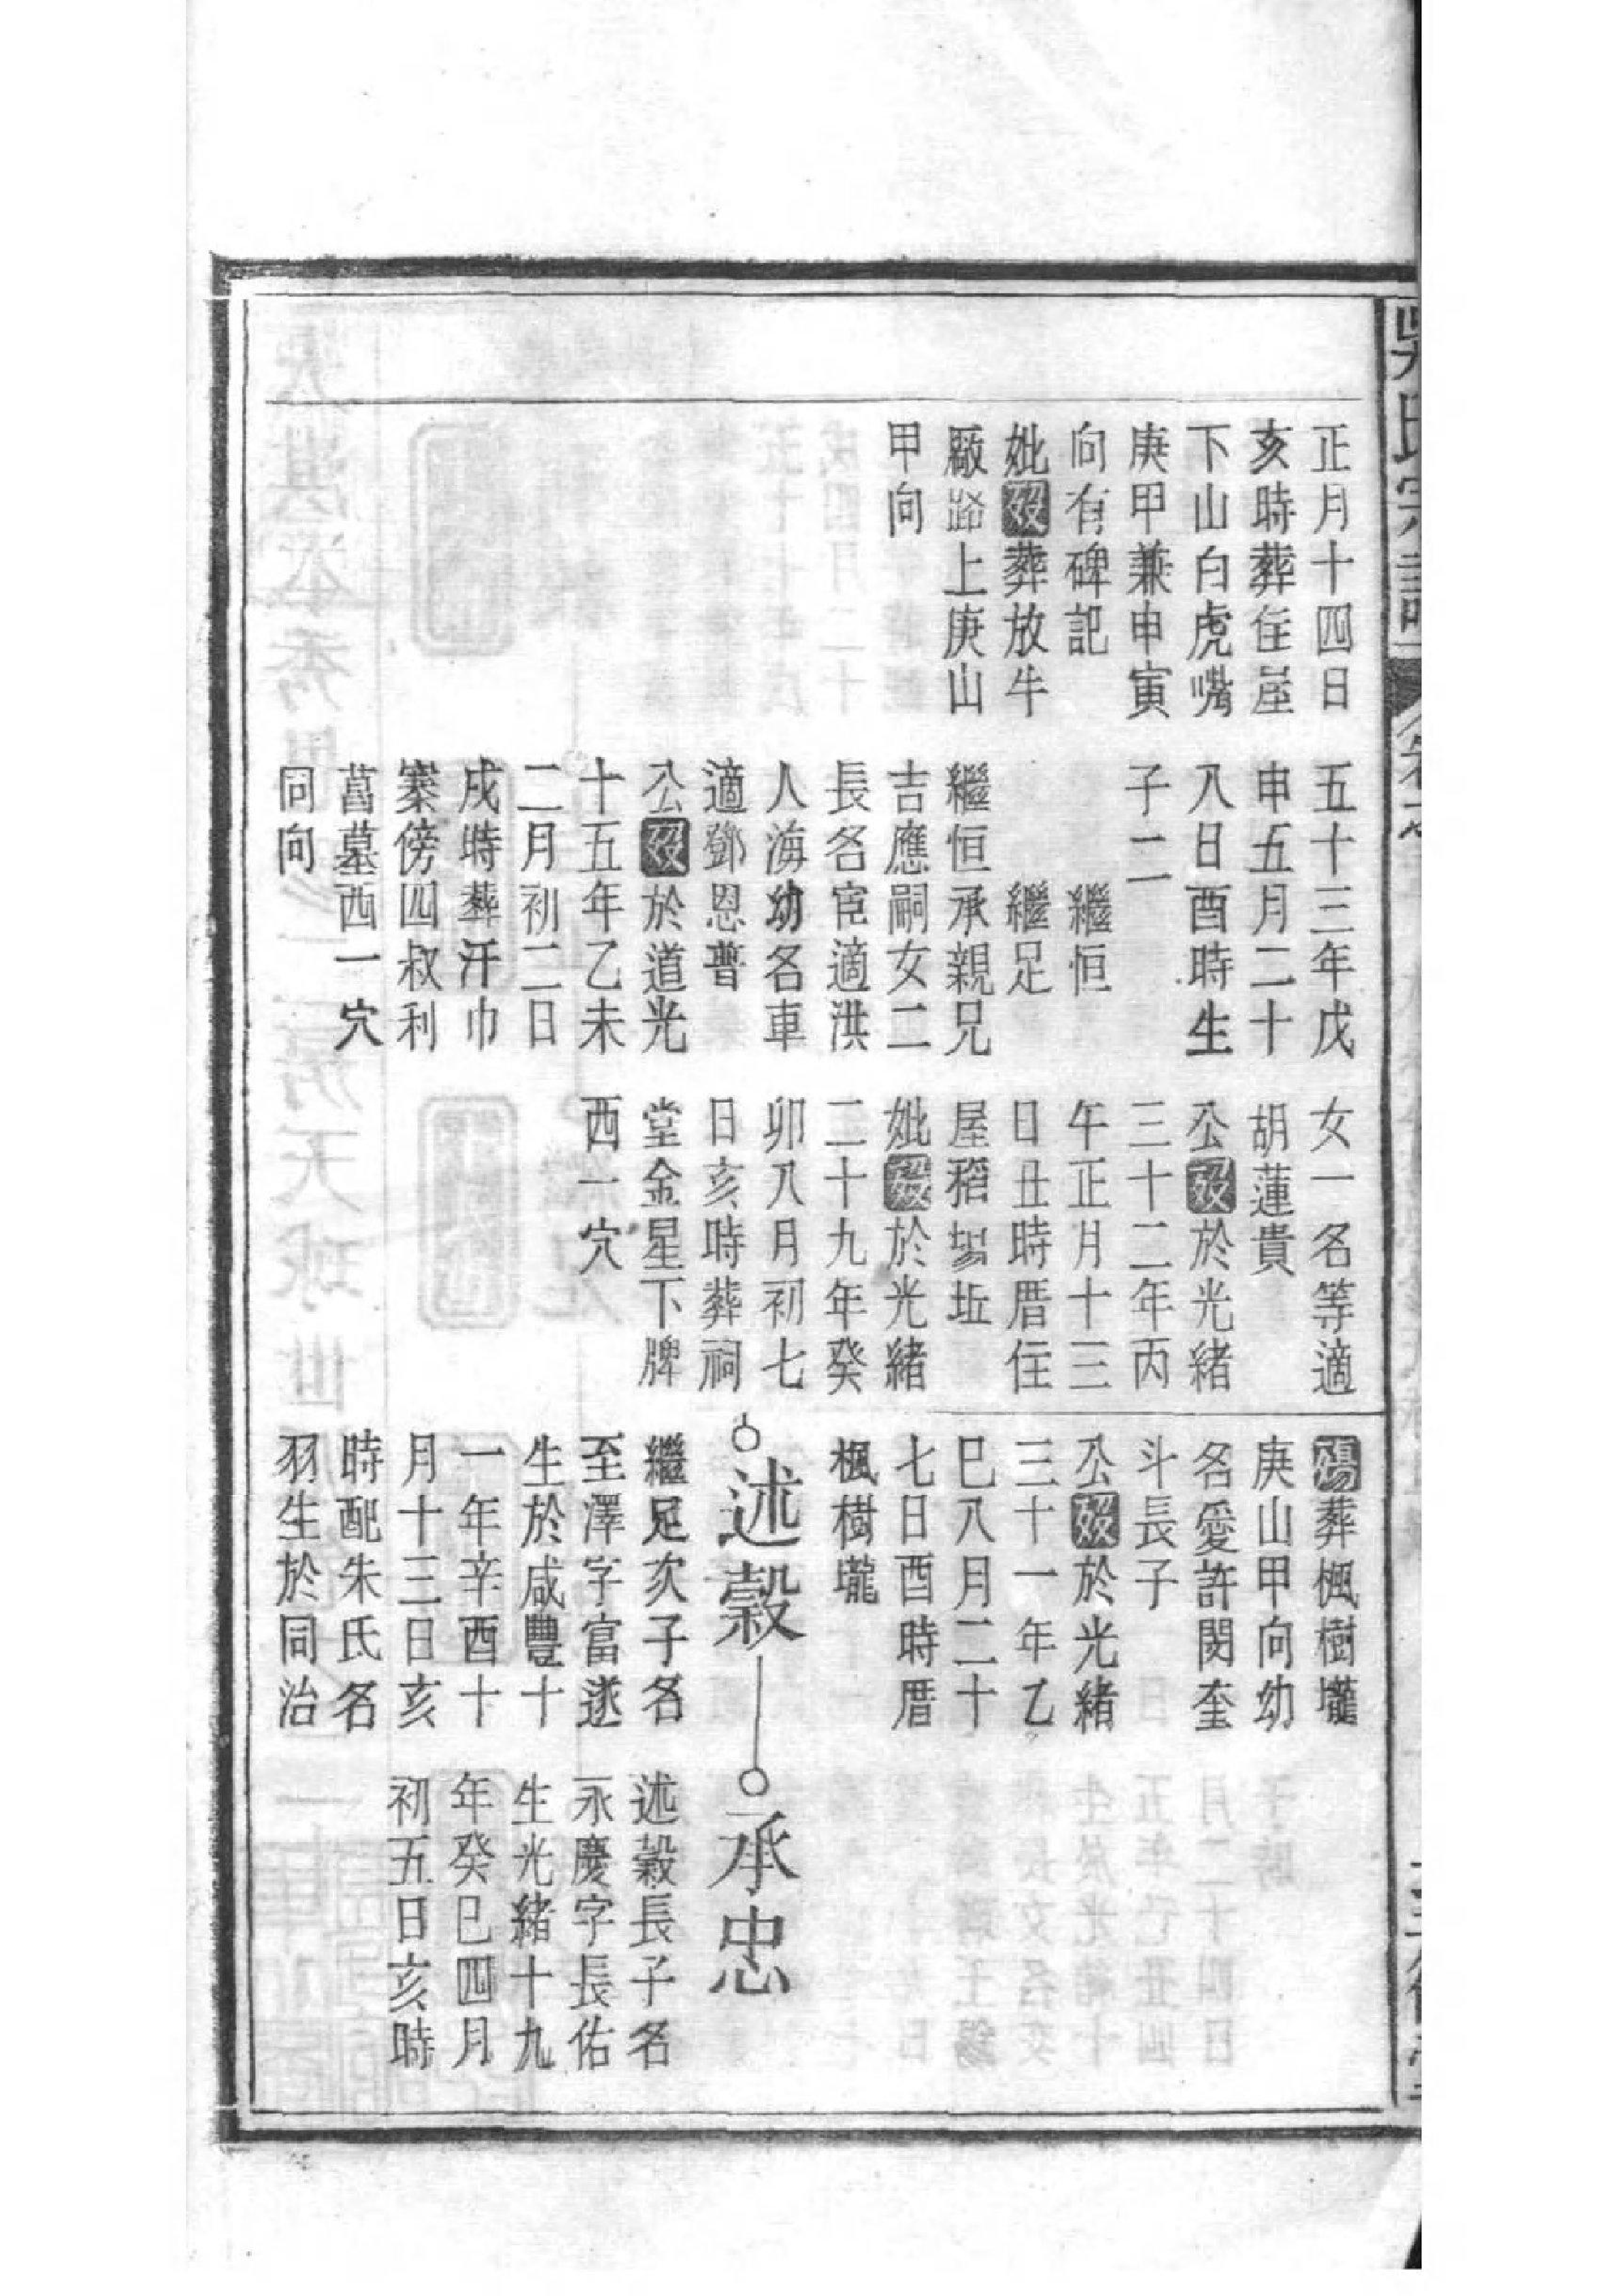 吳氏宗譜
正月十四日
亥時葬住屋
下山白虎嘴
庚甲兼申寅
向有碑記
妣歿葬放牛
廠路上庚山
甲向
五十三年戊
申五月二十
八日酉時生
子二
繼恒
繼足
繼恒承親兄
吉應嗣女二
長名宦適洪
人海幼名車
適鄧恩普
公歿於道光
十五年乙未
二月初二日
戌時葬汗巾
寨傍四叔利
菖墓西一穴
同向
女一名等適
胡蓮貴
公歿於光緒
三十二年丙
午正月十三
日丑時厝住
屋稻場坵
妣歿於光緒
二十九年癸
卯八月初七
日亥時葬祠
堂金星下牌
西一穴
殤葬楓樹壠
庚山甲向幼
名愛許閔奎
斗長子
公歿於光緒
三十一年乙
巳八月二十
七日酉時厝
楓樹壠
述穀
繼足次子名
至澤字富遂
生於咸豐十
一年辛酉十
月十三日亥
時配朱氏名
羽生於同治
承忠
述穀長子名
永慶字長佑
生光緒十九
年癸巳四月
初五日亥時